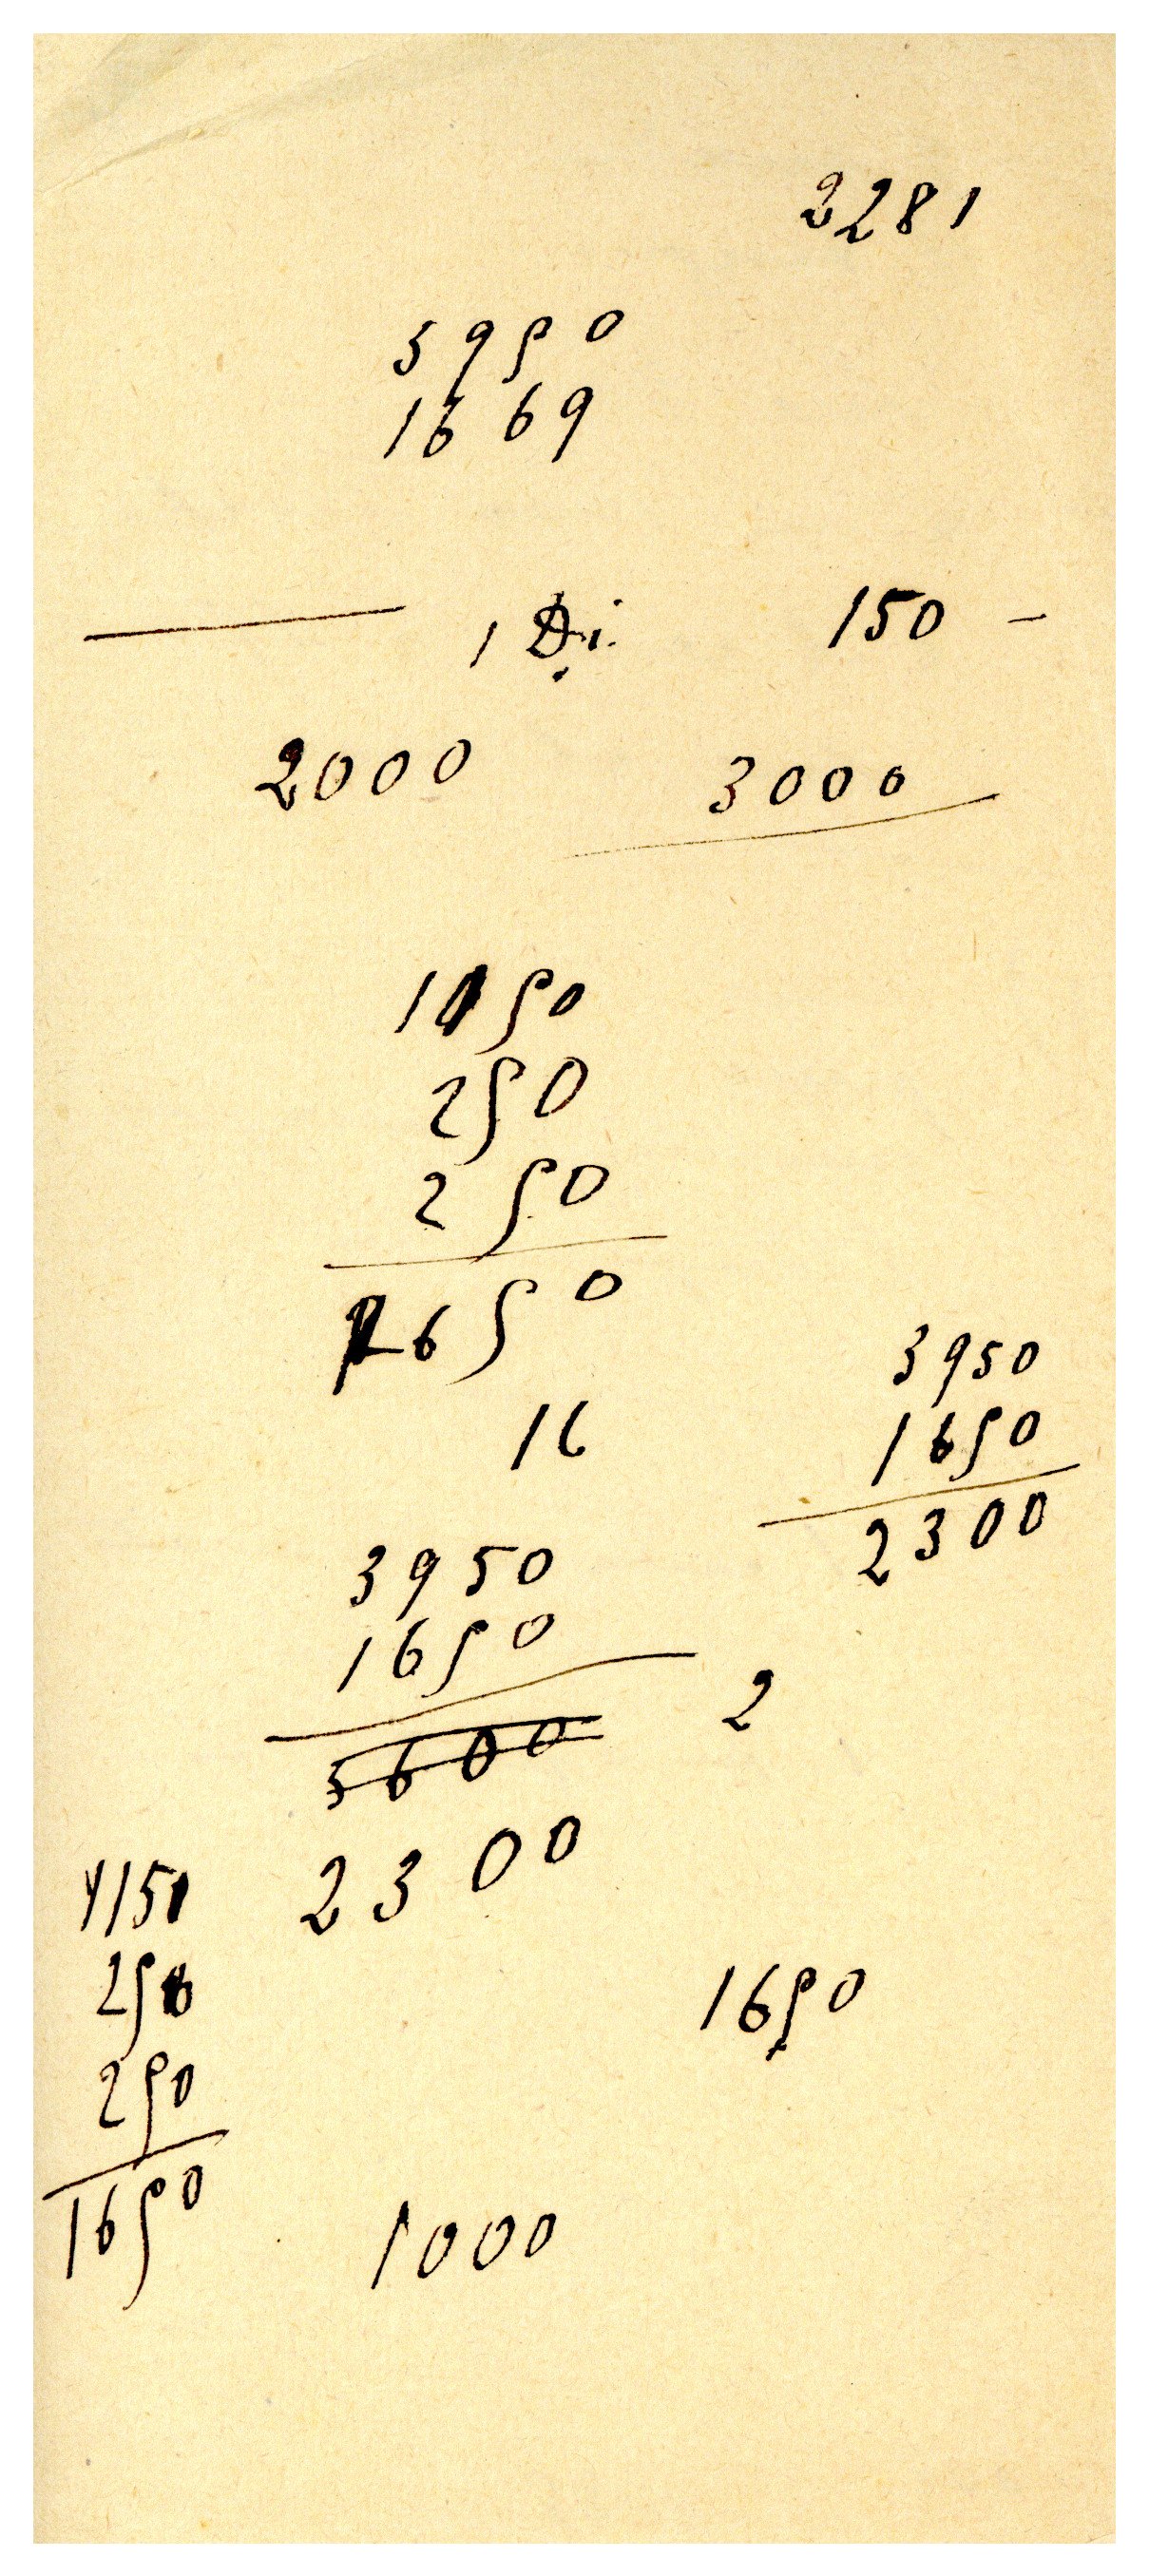 2281
3950
1669
150 –
2000 3000
1150
250
250
1650
3950
16
1650
2300
3950
1650
2
5600
2300
1150
250
1650
250
1650
1000